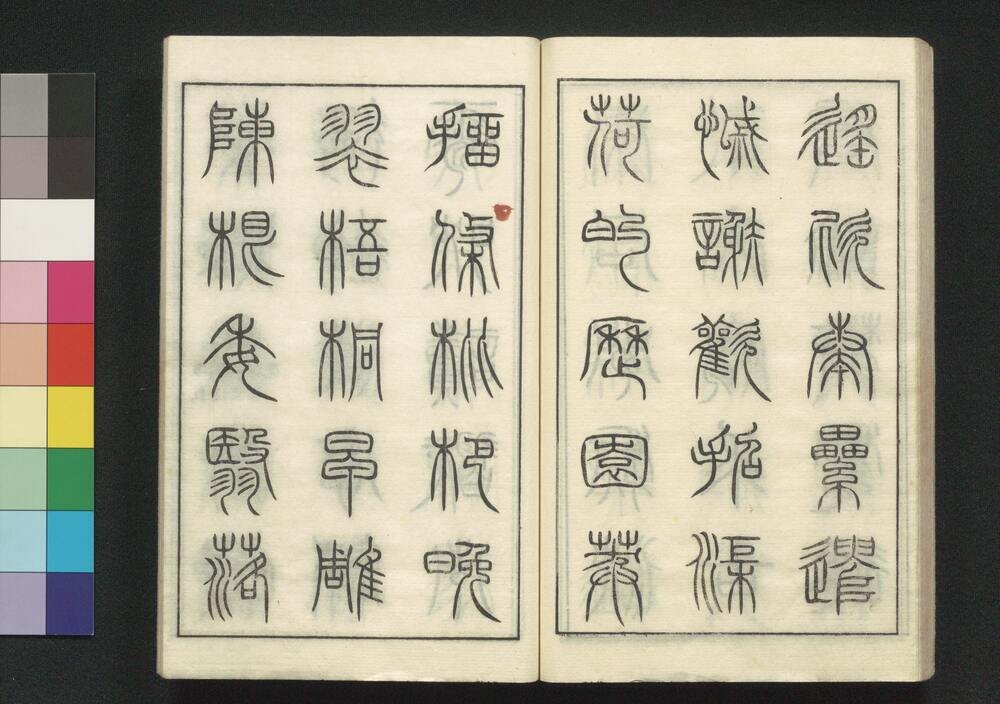 遙欣奏纍遣
慼謝歡招渠
荷的歷園莽
抽條枇杷晚
翠梧桐早雕
陳根委翳落